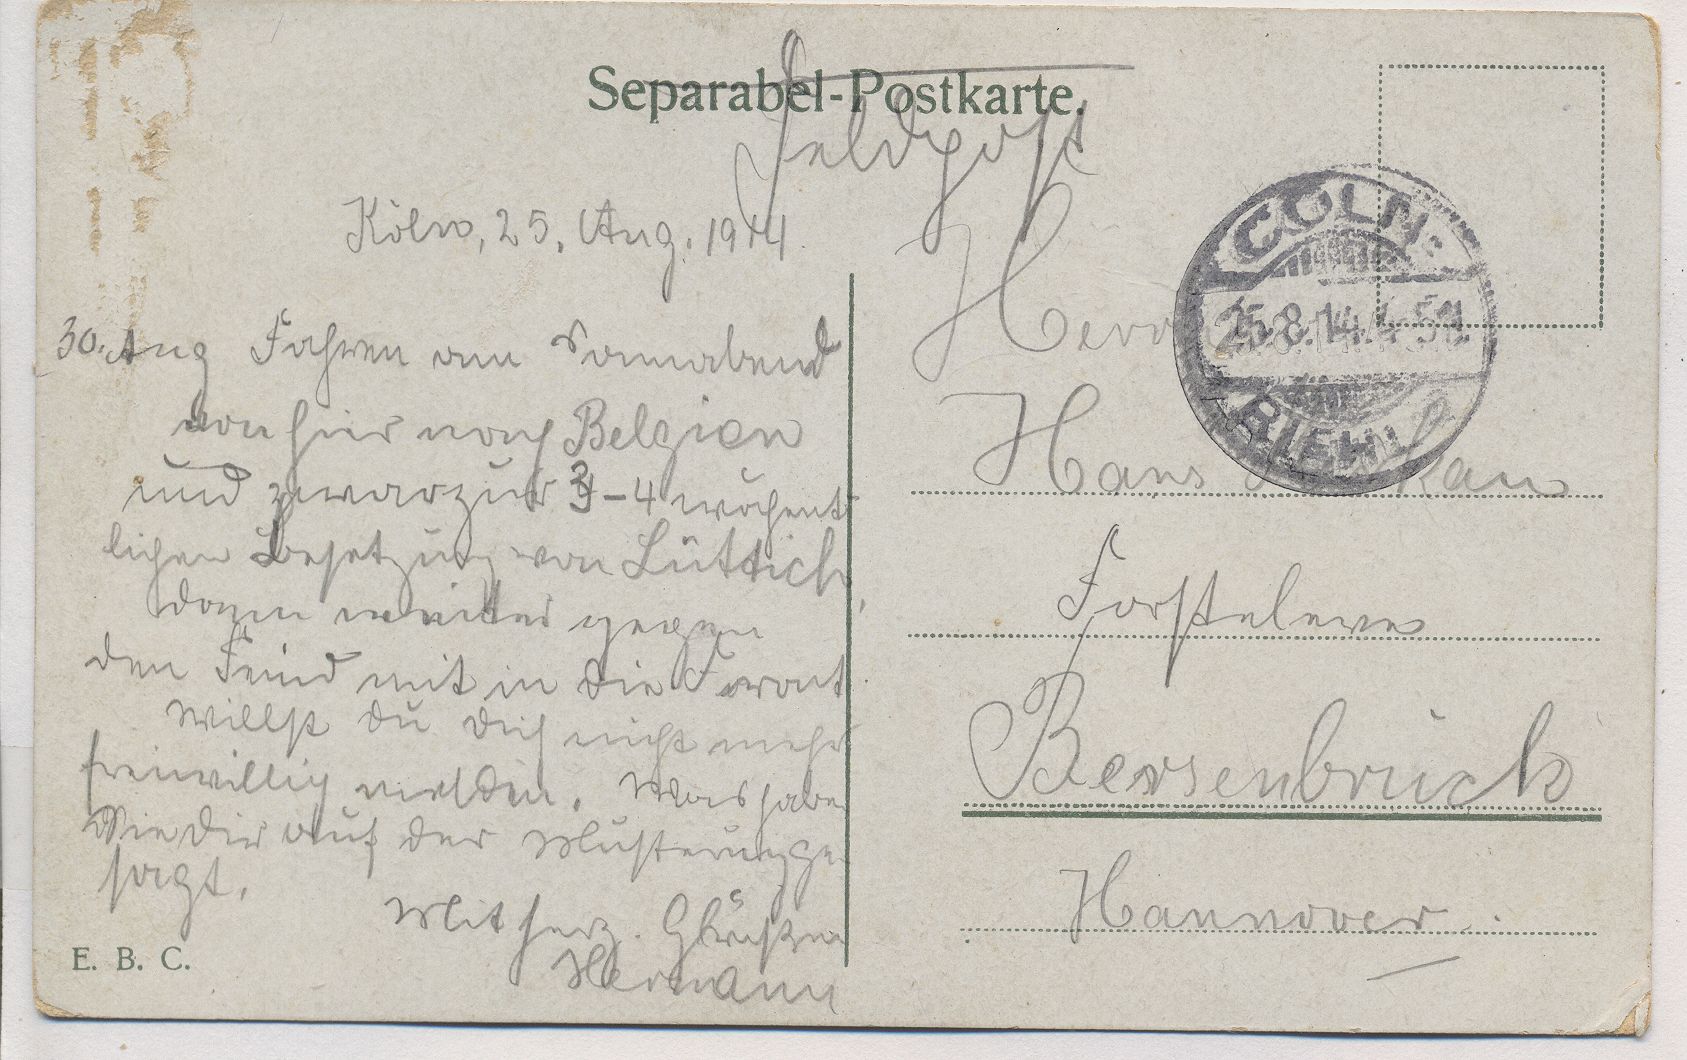 Separabel-Postkarte.
Feldpost
Köln, 25. Aug. 1914.
30. Aug Fahren am Sonnabend
von hier nach Belgien
und zwar zur 3-4 wöchent
lichen Besetzung von Lüttich,
dann weiter gegen
den Feind mit in die Front.
Willst du dich nicht mehr
freiwillig melden. Was haben
Sie dir auf der Musterung ge
sagt.
Mit herz. Grüßen
Hermann
E. B. C.
CÖLN
25.8.14.4-5N.
RIEHL
Herr
Hans
Forsteleve
Bersenbrück
Hannover.